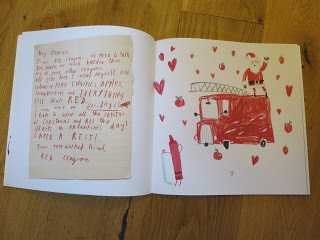 Hey Duncan,
It's me, RED Crayon. We need to talk.
You make me work harder than
any of your other crayons.
All year long I wear myself out
colouring FIRE ENGINES, APPLES,
Strawberries and EVERYTHING
ELSE that's RED.
I even work on holidays!
I have to colour all the SANTAS
at Christmas and ALL the
HEARTS on Valentine's day!
I NEED A REST!
Your overworked friend,
RED Crayon